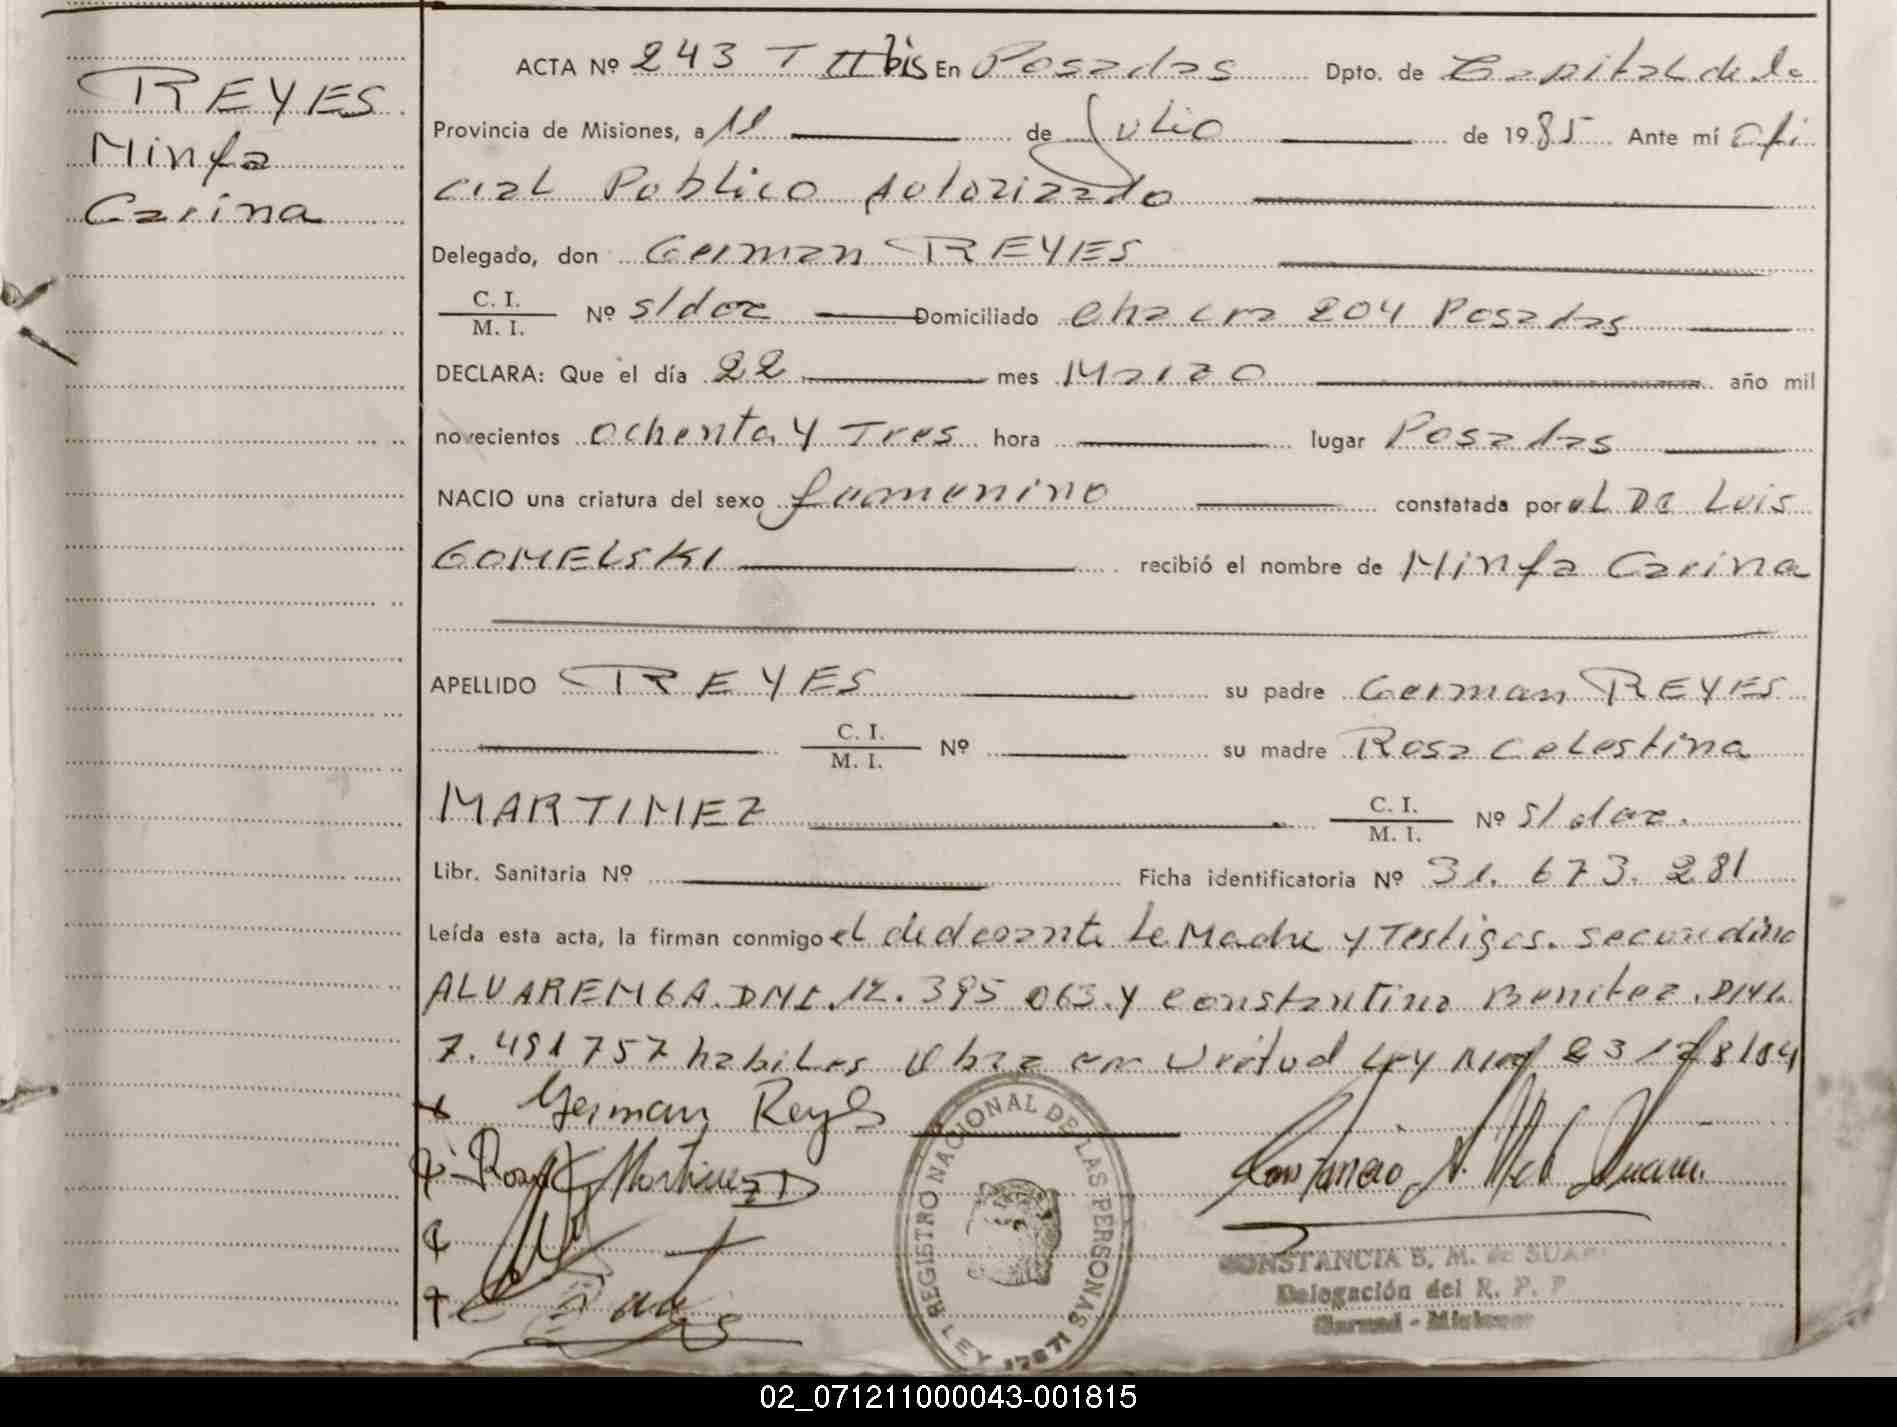 REYES
Minfa
Carina
ACTA Nº 243 T II bis En Posadas Dpto. de Capital de la
Provincia de Misiones, a 11 de Julio de 1985 Ante mí ofi
cial Publico Autorizado
Delegado, don German REYES
C. I.
M. I. Nº s/doc Domiciliado Chacra 204 Posadas
DECLARA: Que el día 22 mes Marzo año mil
novecientos ochenta y Tres hora lugar Posadas
NACIO una criatura del sexo femenino constatada por el Dr Luis
GOMELSKI recibió el nombre de Minfa Carina
APELLIDO REYES su padre German REYES
C. I.
M. I. Nº su madre Rosa Celestina
MARTINEZ C. I.
M. I. Nº s/doc.
Libr. Sanitaria Nº Ficha identificatoria Nº 31.673.281
Leída esta acta, la firman conmigo el declarante la Madre y Testigos. Secundino
ALVARENGA. DNI. 12.395 063. y Constantino Benitez. DNI.
7.491757 habiles Obra en Virtud Ley 23178/84
German Reyes
Rosa C Martinez
REGISTRO NACIONAL DE LAS PERSONAS
LEY 17671
CONSTANCIA B. M. de SUAR
Delegación del R. P. P
Garupá - Misiones
02_071211000043-001815